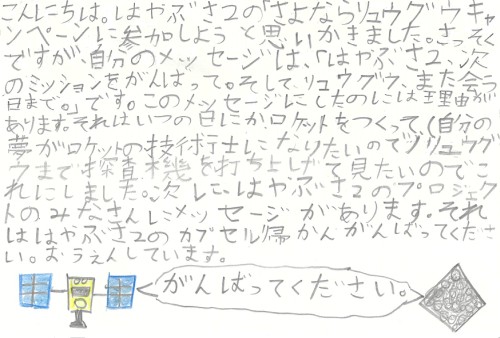 こんにちは。はやぶさ2の「さよならリュウグウキャ
ンペーンに参加しようと思いかきました。さっそく
ですが、自分のメッセージは、「はやぶさ2、次
のミッションをがんばって。そして、リュウグウ、また会う
日まで。」です。このメッセージにしたのには理由が
あります。それはいつの日にかロケットをつくって、(自分の
夢がロケットの技術士になりたいので)リュウグ
ウまで探査機を打ち上げて見たいのでこ
れにしました。次に、はやぶさ2のプロジェク
トのみなさんにメッセージがあります。それ
ははやぶさ2のカプセル帰かんがんばってくださ
い。おうえんしています。
がんばってください。